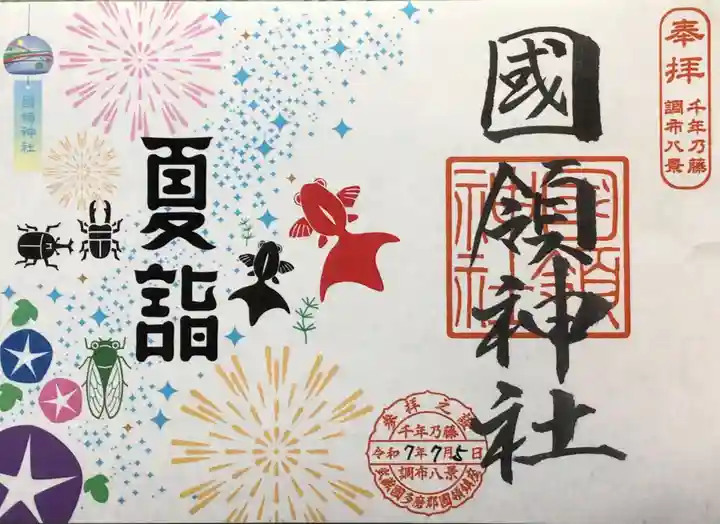 奉拝
千年乃藤
調布八景
國領神社
國領神社
夏詣
國領神社
参拝之證
千年乃藤
令和7年7月5日
調布八景
武蔵國多磨郡國領鎮座